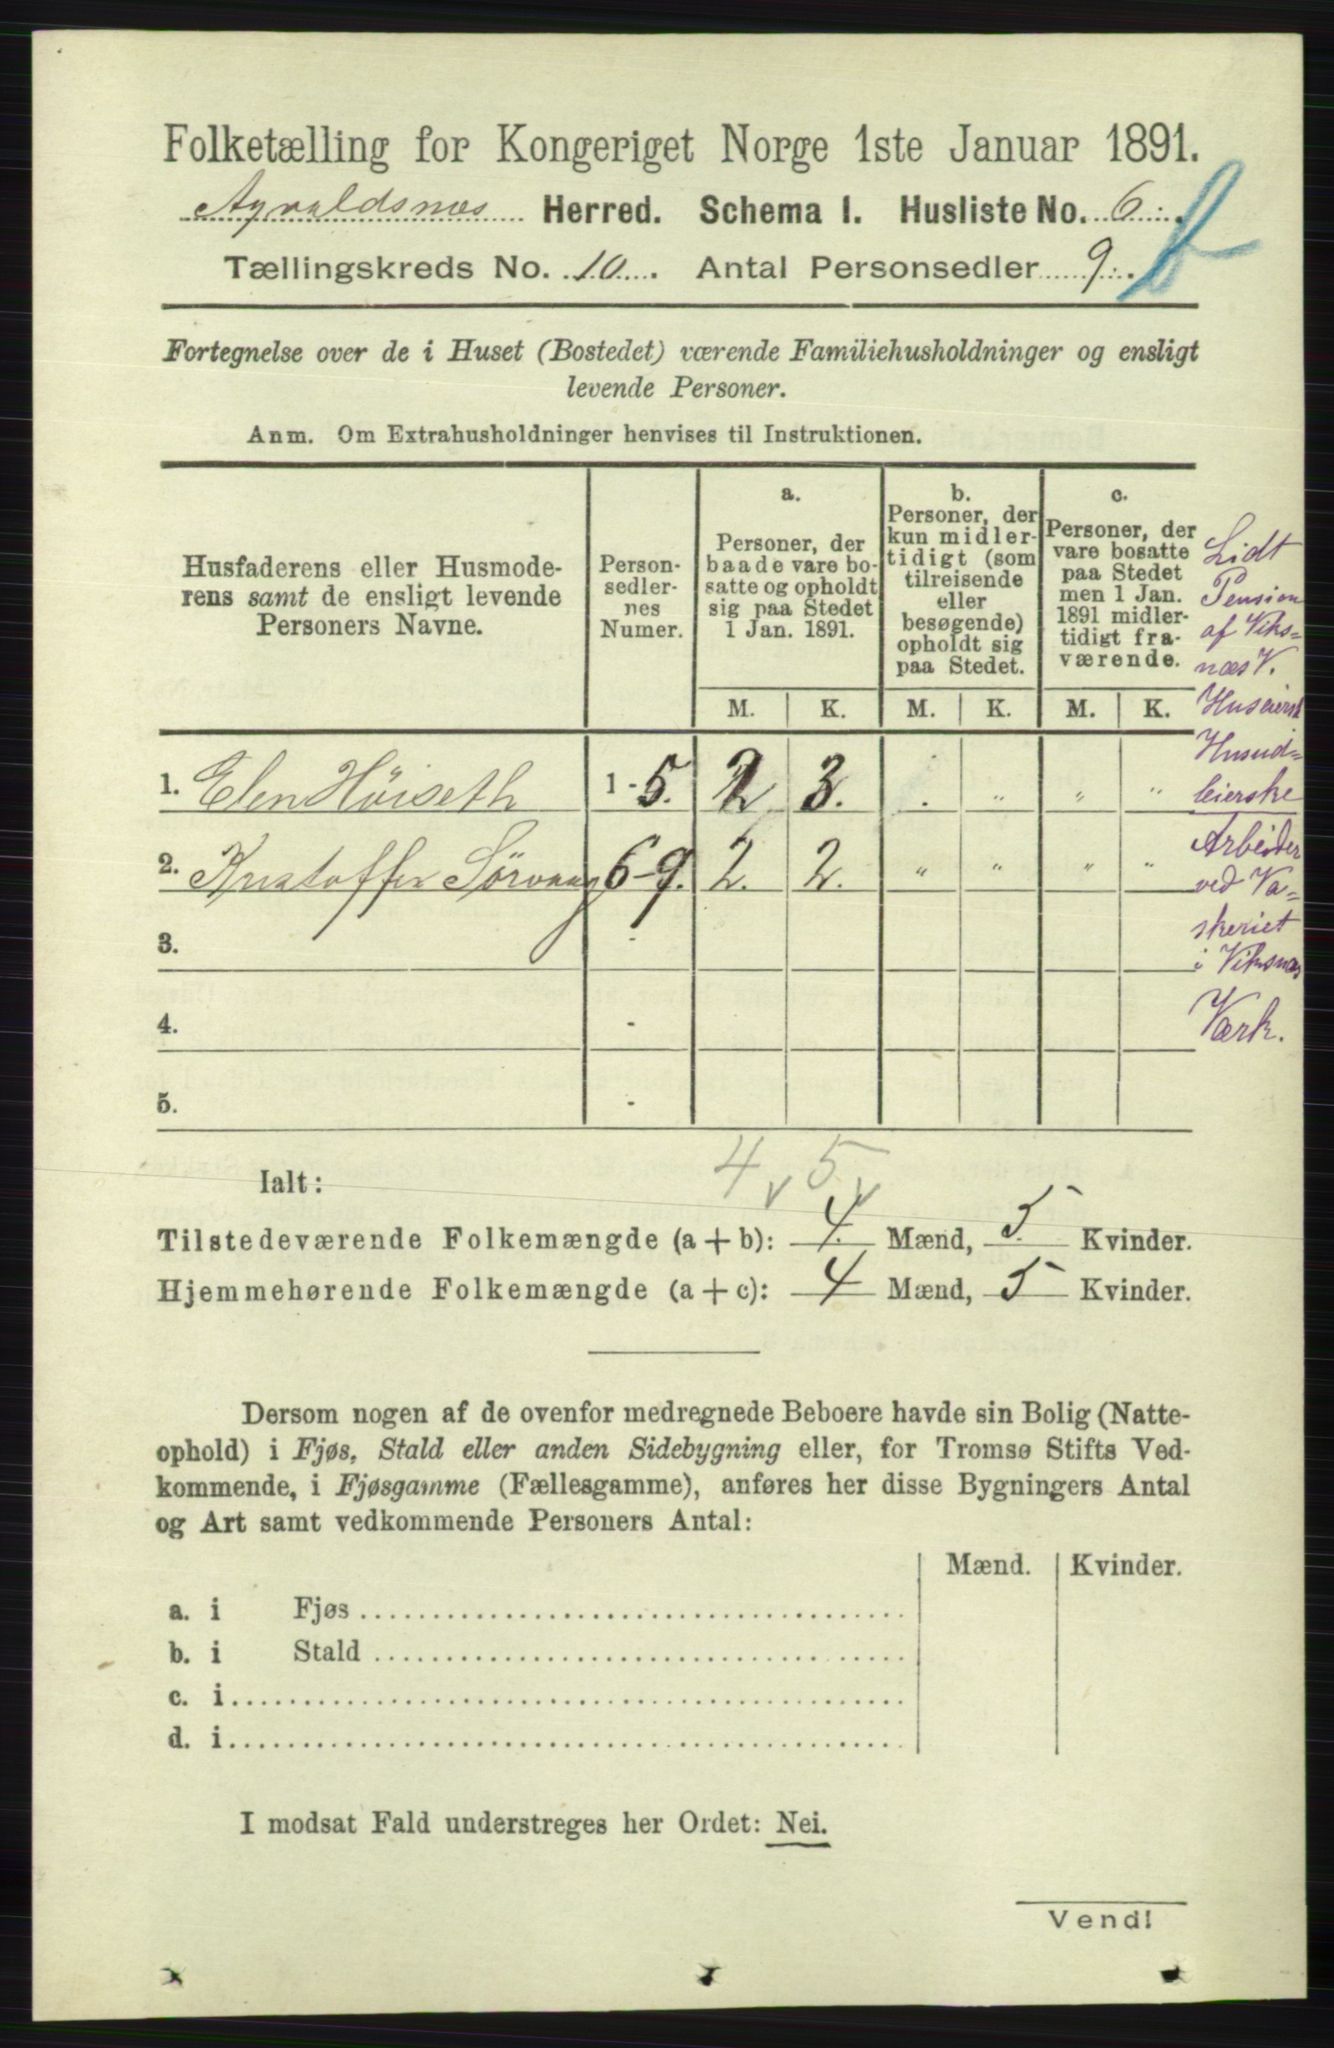 Folketælling for Kongeriget Norge 1ste Januar 1891.
Agvaldsnæs Herred. Schema I. Husliste No. 6.
Tællingskreds No. 10. Antal Personsedler 9.
Fortegnelse over de i Huset (Bostedet) værende Familiehusholdninger og ensligt
levende Personer.
Anm. Om Extrahusholdninger henvises til Instruktionen.
Husfaderens eller Husmode-
rens samt de ensligt levende
Personers Navne.
Person-
sedler-
nes
Numer.
a.
Personer, der
baade vare bo-
satte og opholdt
sig paa Stedet
1 Jan. 1891.
b.
Personer, der
kun midler-
tidigt (som
tilreisende
eller
besøgende)
opholdt sig
paa Stedet.
c.
Personer, der
vare bosatte
paa Stedet
men 1 Jan.
1891 midler-
tidigt fra-
værende.
M. K. M. K. M. K.
1. Elen Höiseth 1 - 5. 2 3. . " " "
2. Kristoffer Sörvaag 6-9. 2. 2. " " " "
3. -
4. -
5. -
Lidt
Pension
af Viks-
næs V.
Huseiersk
Husud-
leierske
Arbeider
ved Va-
skeriet
i Viksnæs
Værk.
4 5
Ialt:
Tilstedeværende Folkemængde (a + b): 4. Mænd, 5. Kvinder.
Hjemmehørende Folkemængde (a + c): 4 Mænd, 5 Kvinder.
Dersom nogen af de ovenfor medregnede Beboere havde sin Bolig (Natte-
ophold) i Fjøs, Stald eller anden Sidebygning eller, for Tromsø Stifts Ved-
kommende, i Fjøsgamme (Fællesgamme), anføres her disse Bygningers Antal
og Art samt vedkommende Personers Antal:
Mænd. Kvinder.
a. i Fjøs
b. i Stald
c. i
d. i
I modsat Fald understreges her Ordet: Nei.
Vend!